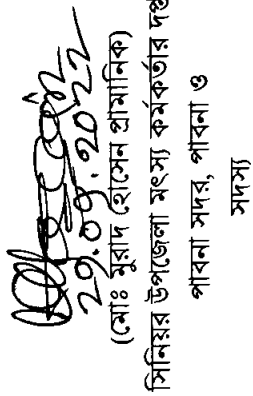 29.09.2022
(মোঃ মুরাদ হোসেন প্রামানিক)
সিনিয়র উপজেলা মৎস্য কর্মকর্তার দপ্ত
পাবনা সদর, পাবনা ও
সদস্য